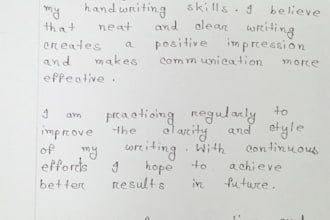 my handwriting skills. I believe
that neat and clear writing
creates a positive impression
and makes communication more
effective.
I am practicing regularly to
improve the clarity and style
of my writing. With continuous
efforts I hope to achieve
better results in future.